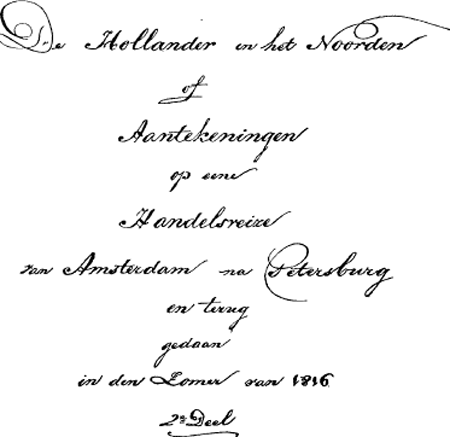 De Hollander in het Noorden
of
Aantekeningen
op eene
Handelsreize
van Amsterdam na Petersburg
en terug
gedaan
in den Zomer van 1816
2e Deel